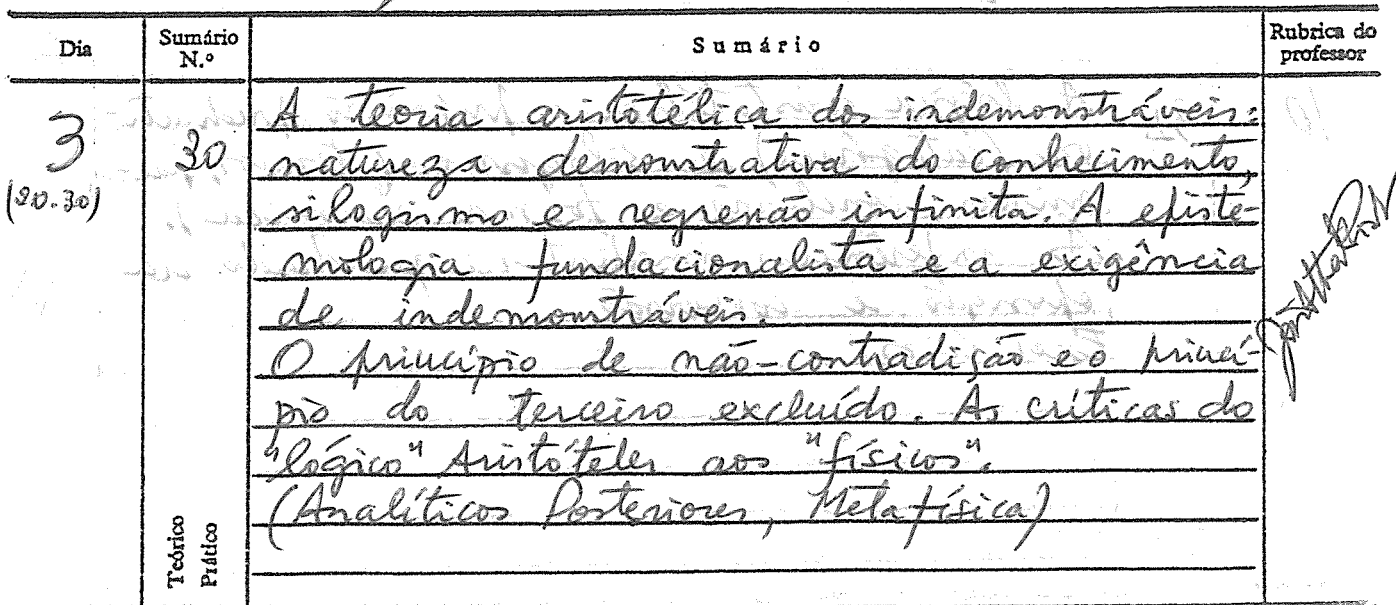 Dia
Sumário N.º
Sumário
Rubrica do professor
3
(20.30)
30
A teoria aristotélica dos indemonstráveis:
natureza demonstrativa do conhecimento,
silogismo e regressão infinita. A episte-
mologia fundacionalista e a exigência
de indemonstráveis.
O princípio de não-contradição e o princí-
pio do terceiro excluído. As críticas do
"lógico" Aristóteles aos "físicos".
(Analíticos Posteriores, Metafísica)
Teórico
Prático